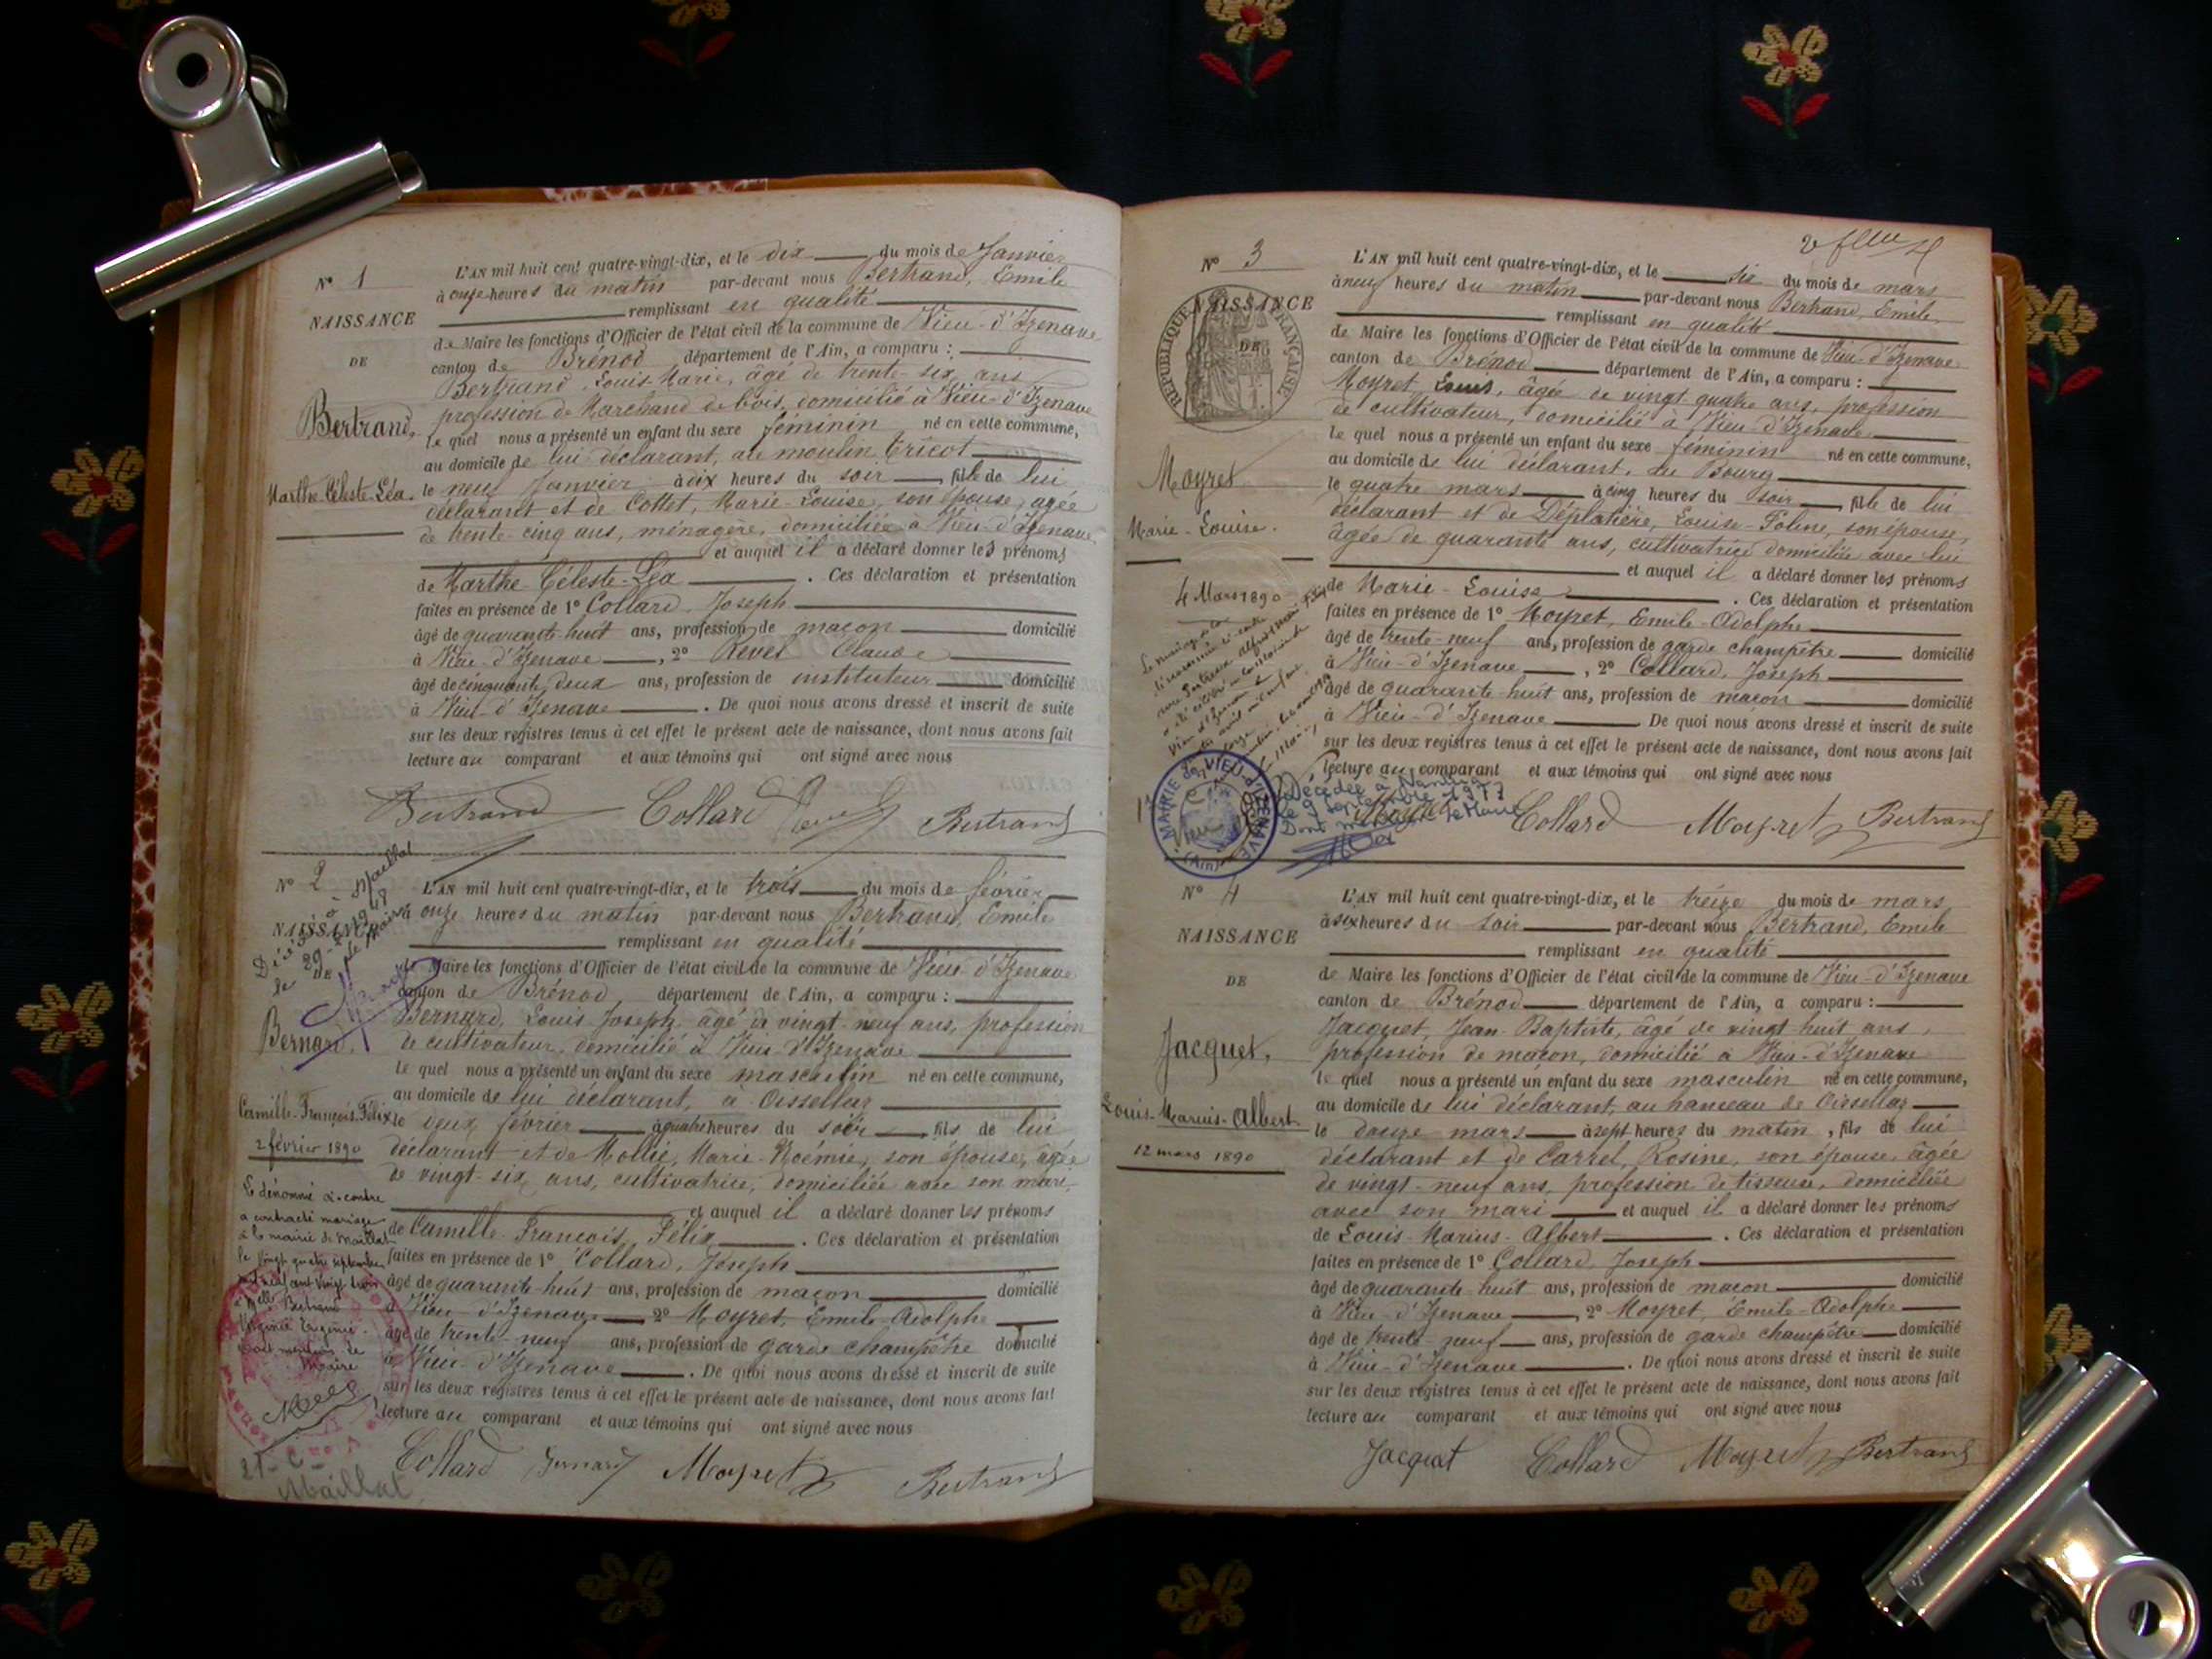 N° 1
NAISSANCE
DE
Bertrand,
Marthe-Céleste-Léa.
L'AN mil huit cent quatre-vingt-dix, et le dix du mois de Janvier
à onze heures du matin par-devant nous Bertrand, Emile
remplissant en qualité
de Maire les fonctions d'Officier de l'état civil de la commune de Vieu-d'Izenave
canton de Brénod département de l'Ain, a comparu :
Bertrand, Louis-Marie, âgé de trente-six ans
profession de Marchand de bois, domicilié à Vieu-d'Izenave
le quel nous a présenté un enfant du sexe féminin né en cette commune,
au domicile de lui déclarant, au moulin Tricot
le neuf Janvier à dix heures du soir, fille de lui
déclarant et de Cottet, Marie-Louise, son épouse, agée
de trente-cinq ans, ménagère, domiciliée à Vieu-d'Izenave
et auquel il a déclaré donner les prénoms
de Marthe-Céleste-Léa. Ces déclaration et présentation
faites en présence de 1° Collard, Joseph
âgé de quarante-huit ans, profession de maçon domicilié
à Vieu-d'Izenave, 2° Revel Claude
âgé de cinquante-deux ans, profession de instituteur domicilié
à Vieu-d'Izenave. De quoi nous avons dressé et inscrit de suite
sur les deux registres tenus à cet effet le présent acte de naissance, dont nous avons fait
lecture au comparant et aux témoins qui ont signé avec nous
Bertrand Collard Revel Bertrand
N° 2
NAISSANCE
DE
Décédé à Maillat
le 29
le Maire
Bernard.
Camille-François-Félix
2 février 1890
Le dénommé ci-contre
a contracté mariage
à la mairie de Maillat
le vingt quatre septembre
mil neuf cent vingt trois
Bertrand
Eugénie.
Dont mention le
Maire
L'AN mil huit cent quatre-vingt-dix, et le trois du mois de février
à onze heures du matin par-devant nous Bertrand, Emile
remplissant en qualité
de Maire les fonctions d'Officier de l'état civil de la commune de Vieu-d'Izenave
canton de Brénod, département de l'Ain, a comparu :
Bernard, Louis-Joseph, âgé de vingt-neuf ans, profession
de cultivateur, domicilié à Vieu-d'Izenave
le quel nous a présenté un enfant du sexe masculin né en cette commune,
au domicile de lui déclarant, à Oisselaz
le deux février à quatre heures du soir, fils de lui
déclarant et de Mollié, Marie-Noémie, son épouse, âgée
de vingt-six ans, cultivatrice, domiciliée avec son mari,
et auquel il a déclaré donner les prénoms
de Camille-François Félix. Ces déclaration et présentation
faites en présence de 1° Collard, Joseph
âgé de quarante-huit ans, profession de maçon domicilié
à Vieu-d'Izenave 2° Moyret, Emile-Adolphe
âgé de trente-neuf ans, profession de garde champêtre domicilié
à Vieu-d'Izenave. De quoi nous avons dressé et inscrit de suite
sur les deux registres tenus à cet effet le présent acte de naissance, dont nous avons fait
lecture au comparant et aux témoins qui ont signé avec nous
Collard Bernard Moyret Bertrand
Maillat
N° 3
NAISSANCE
DE
RÉPUBLIQUE FRANÇAISE
Moyret
Marie-Louise.
4 Mars 1890
MAIRIE de VIEU-d'IZENAVE
(Ain)
Décédée à Nantua
le 9 septembre 1977
Dont mention le Maire
L'AN mil huit cent quatre-vingt-dix, et le six du mois de mars
à neuf heures du matin par-devant nous Bertrand, Emile,
remplissant en qualité
de Maire les fonctions d'Officier de l'état civil de la commune de Vieu-d'Izenave
canton de Brénod département de l'Ain, a comparu :
Moyret, Louis, âgée de vingt quatre ans, profession
de cultivateur, domicilié à Vieu-d'Izenave
le quel nous a présenté un enfant du sexe féminin né en cette commune,
au domicile de lui déclarant, au Bourg
le quatre mars à cinq heures du soir, fille de lui
déclarant et de Déplatière, Louise-Foline, son épouse,
âgée de quarante ans, cultivatrice domiciliée avec lui
et auquel il a déclaré donner les prénoms
de Marie-Louise. Ces déclaration et présentation
faites en présence de 1° Moyret, Emile-Adolphe
âgé de trente-neuf ans, profession de garde champêtre domicilié
à Vieu-d'Izenave, 2° Collard, Joseph
âgé de quarante-huit ans, profession de maçon domicilié
à Vieu-d'Izenave. De quoi nous avons dressé et inscrit de suite
sur les deux registres tenus à cet effet le présent acte de naissance, dont nous avons fait
lecture au comparant et aux témoins qui ont signé avec nous
Moyret Collard Moyret Bertrand
N° 4
NAISSANCE
DE
Jacquet,
Louis-Marius-Albert
12 mars 1890
L'AN mil huit cent quatre-vingt-dix, et le treize du mois de mars
à six heures du soir par-devant nous Bertrand, Emile
remplissant en qualité
de Maire les fonctions d'Officier de l'état civil de la commune de Vieu-d'Izenave
canton de Brénod département de l'Ain, a comparu :
Jacquet, Jean-Baptiste, âgé de vingt huit ans,
profession de maçon, domicilié à Vieu-d'Izenave
le quel nous a présenté un enfant du sexe masculin né en cette commune,
au domicile de lui déclarant, au hameau de Oisselaz
le douze mars à sept heures du matin, fils de lui
déclarant et de Carrel, Rosine, son épouse, âgée
de vingt-neuf ans, profession de tisseuse, domiciliée
avec son mari et auquel il a déclaré donner les prénoms
de Louis-Marius-Albert. Ces déclaration et présentation
faites en présence de 1° Collard, Joseph
âgé de quarante-huit ans, profession de maçon domicilié
à Vieu-d'Izenave, 2° Moyret, Emile-Adolphe
âgé de trente-neuf ans, profession de garde champêtre domicilié
à Vieu-d'Izenave. De quoi nous avons dressé et inscrit de suite
sur les deux registres tenus à cet effet le présent acte de naissance, dont nous avons fait
lecture au comparant et aux témoins qui ont signé avec nous
Jacquet Collard Moyret Bertrand